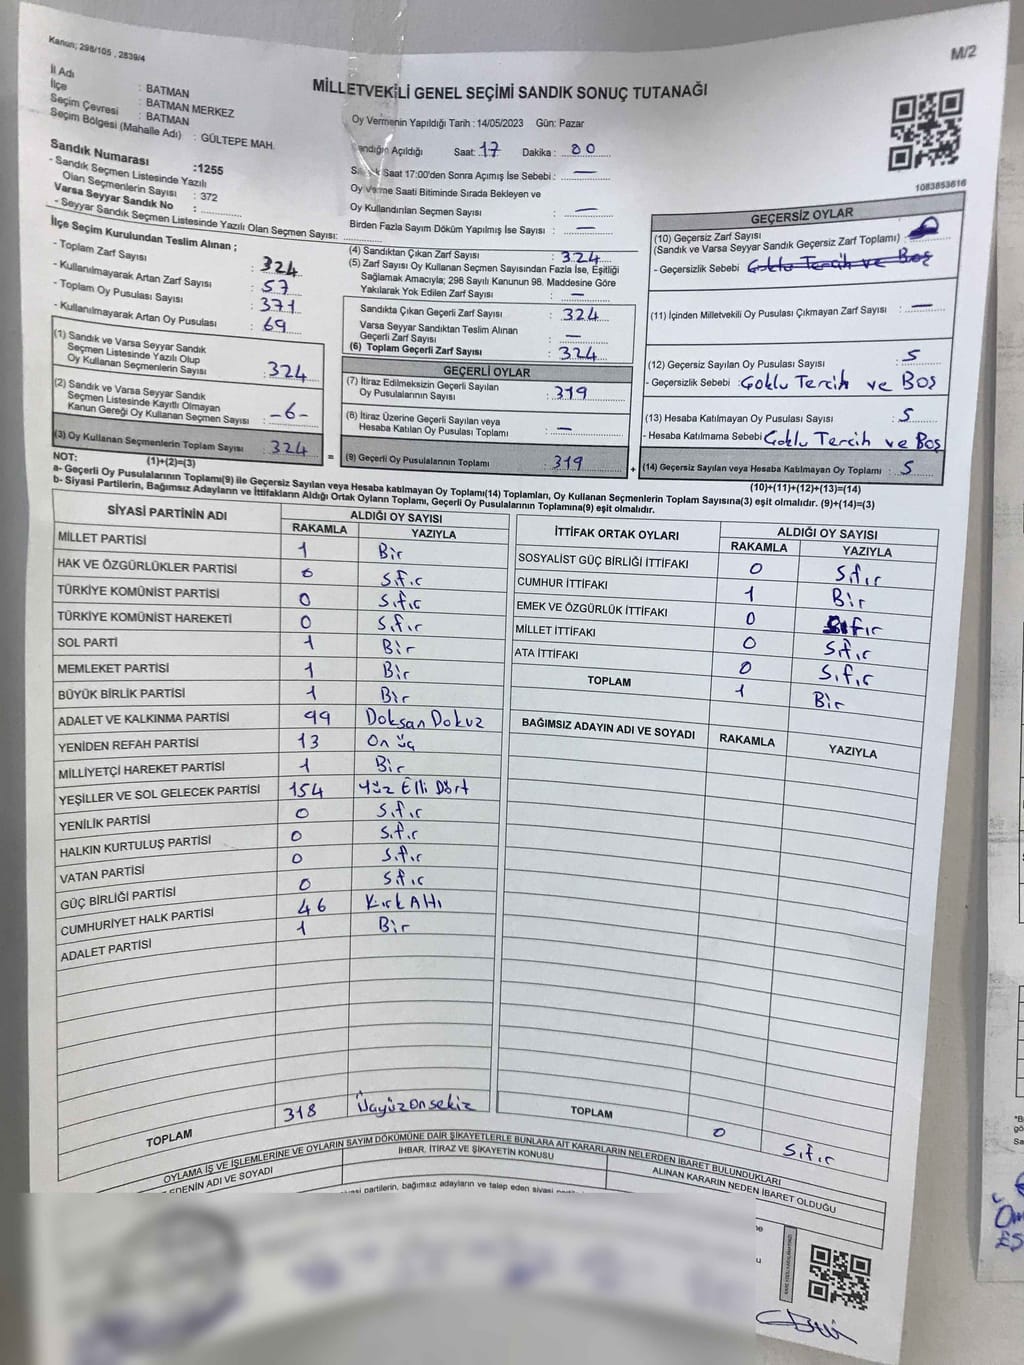 Kanun; 298/105 , 2839/4
M/2
İl Adı : BATMAN
İlçe : BATMAN MERKEZ
Seçim Çevresi : BATMAN
Seçim Bölgesi (Mahalle Adı) : GÜLTEPE MAH.
Sandık Numarası :1255
- Sandık Seçmen Listesinde Yazılı
Olan Seçmenlerin Sayısı : 372
Varsa Seyyar Sandık No :
- Seyyar Sandık Seçmen Listesinde Yazılı Olan Seçmen Sayısı:
MİLLETVEKİLİ GENEL SEÇİMİ SANDIK SONUÇ TUTANAĞI
Oy Vermenin Yapıldığı Tarih : 14/05/2023 Gün: Pazar
Sandığın Açıldığı Saat: 17 Dakika : 00
Saat 17:00'den Sonra Açımış İse Sebebi : —
Oy Verme Saati Bitiminde Sırada Bekleyen ve
Oy Kullandırılan Seçmen Sayısı : —
Birden Fazla Sayım Döküm Yapılmış İse Sayısı : —
1083853616
İlçe Seçim Kurulundan Teslim Alınan ;
- Toplam Zarf Sayısı : 324
- Kullanılmayarak Artan Zarf Sayısı : 57
- Toplam Oy Pusulası Sayısı : 371
- Kullanılmayarak Artan Oy Pusulası : 69
(1) Sandık ve Varsa Seyyar Sandık
Seçmen Listesinde Yazılı Olup
Oy Kullanan Seçmenlerin Sayısı : 324
(2) Sandık ve Varsa Seyyar Sandık
Seçmen Listesinde Kayıtlı Olmayan
Kanun Gereği Oy Kullanan Seçmen Sayısı : -6-
(3) Oy Kullanan Seçmenlerin Toplam Sayısı : 324
(1)+(2)=(3)
(4) Sandıktan Çıkan Zarf Sayısı : 324
(5) Zarf Sayısı Oy Kullanan Seçmen Sayısından Fazla İse, Eşitliği
Sağlamak Amacıyla; 298 Sayılı Kanunun 98. Maddesine Göre
Yakılarak Yok Edilen Zarf Sayısı : —
Sandıkta Çıkan Geçerli Zarf Sayısı : 324
Varsa Seyyar Sandıktan Teslim Alınan
Geçerli Zarf Sayısı : —
(6) Toplam Geçerli Zarf Sayısı : 324
GEÇERLİ OYLAR
(7) İtiraz Edilmeksizin Geçerli Sayılan
Oy Pusulalarının Sayısı : 319
(8) İtiraz Üzerine Geçerli Sayılan veya
Hesaba Katılan Oy Pusulası Toplamı : —
(9) Geçerli Oy Pusulalarının Toplamı : 319
GEÇERSİZ OYLAR
(10) Geçersiz Zarf Sayısı
(Sandık ve Varsa Seyyar Sandık Geçersiz Zarf Toplamı) :
- Geçersizlik Sebebi Çoklu Tercih ve Boş
(11) İçinden Milletvekili Oy Pusulası Çıkmayan Zarf Sayısı : —
(12) Geçersiz Sayılan Oy Pusulası Sayısı : 5
- Geçersizlik Sebebi : Çoklu Tercih ve Boş
(13) Hesaba Katılmayan Oy Pusulası Sayısı : 5
- Hesaba Katılmama Sebebi : Çoklu Tercih ve Boş
(14) Geçersiz Sayılan veya Hesaba Katılmayan Oy Toplamı : 5
(10)+(11)+(12)+(13)=(14)
NOT:
a- Geçerli Oy Pusulalarının Toplamı(9) ile Geçersiz Sayılan veya Hesaba Katılmayan Oy Toplamı(14) Toplamları, Oy Kullanan Seçmenlerin Toplam Sayısına(3) eşit olmalıdır. (9)+(14)=(3)
b- Siyasi Partilerin, Bağımsız Adayların ve İttifakların Aldığı Ortak Oyların Toplamı, Geçerli Oy Pusulalarının Toplamına(9) eşit olmalıdır.
SİYASİ PARTİNİN ADI ALDIĞI OY SAYISI
RAKAMLA YAZIYLA
MİLLET PARTİSİ 1 Bir
HAK VE ÖZGÜRLÜKLER PARTİSİ 0 Sıfır
TÜRKİYE KOMÜNİST PARTİSİ 0 Sıfır
TÜRKİYE KOMÜNİST HAREKETİ 0 Sıfır
SOL PARTİ 1 Bir
MEMLEKET PARTİSİ 1 Bir
BÜYÜK BİRLİK PARTİSİ 1 Bir
ADALET VE KALKINMA PARTİSİ 99 Doksan Dokuz
YENİDEN REFAH PARTİSİ 13 On üç
MİLLİYETÇİ HAREKET PARTİSİ 1 Bir
YEŞİLLER VE SOL GELECEK PARTİSİ 154 Yüz Elli Dört
YENİLİK PARTİSİ 0 Sıfır
HALKIN KURTULUŞ PARTİSİ 0 Sıfır
VATAN PARTİSİ 0 Sıfır
GÜÇ BİRLİĞİ PARTİSİ 0 Sıfır
CUMHURİYET HALK PARTİSİ 46 Kırk Altı
ADALET PARTİSİ 1 Bir
TOPLAM 318 Üçyüzonsekiz
İTTİFAK ORTAK OYLARI ALDIĞI OY SAYISI
RAKAMLA YAZIYLA
SOSYALİST GÜÇ BİRLİĞİ İTTİFAKI 0 Sıfır
CUMHUR İTTİFAKI 1 Bir
EMEK VE ÖZGÜRLÜK İTTİFAKI 0 Sıfır
MİLLET İTTİFAKI 0 Sıfır
ATA İTTİFAKI 0 Sıfır
TOPLAM 1 Bir
BAĞIMSIZ ADAYIN ADI VE SOYADI RAKAMLA YAZIYLA
TOPLAM 0 Sıfır
OYLAMA İŞ VE İŞLEMLERİNE VE OYLARIN SAYIM DÖKÜMÜNE DAİR ŞİKAYETLERLE BUNLARA AİT KARARLARIN NELERDEN İBARET BULUNDUKLARI
EDENİN ADI VE SOYADI İHBAR, İTİRAZ VE ŞİKAYETİN KONUSU ALINAN KARARIN NEDEN İBARET OLDUĞU
partilerin, bağımsız adayların ve talep eden siyasi